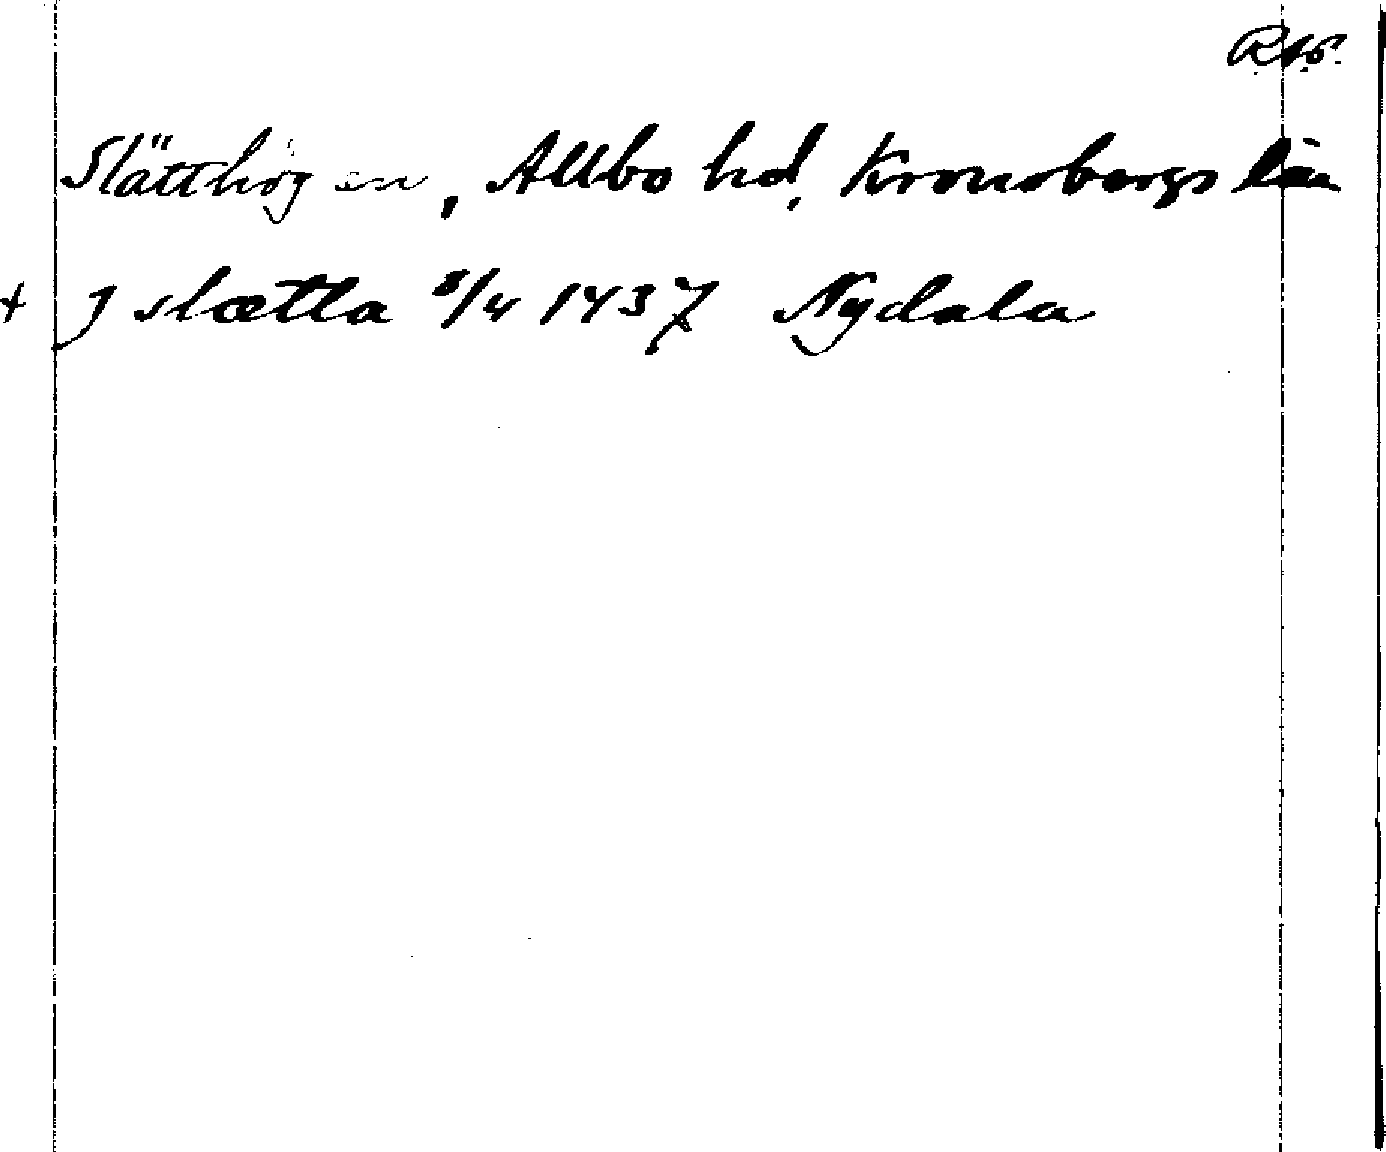 Slätthög sn, Allbo hd, Kronobergs län
+ J slætta 8/4 1437 Nydala